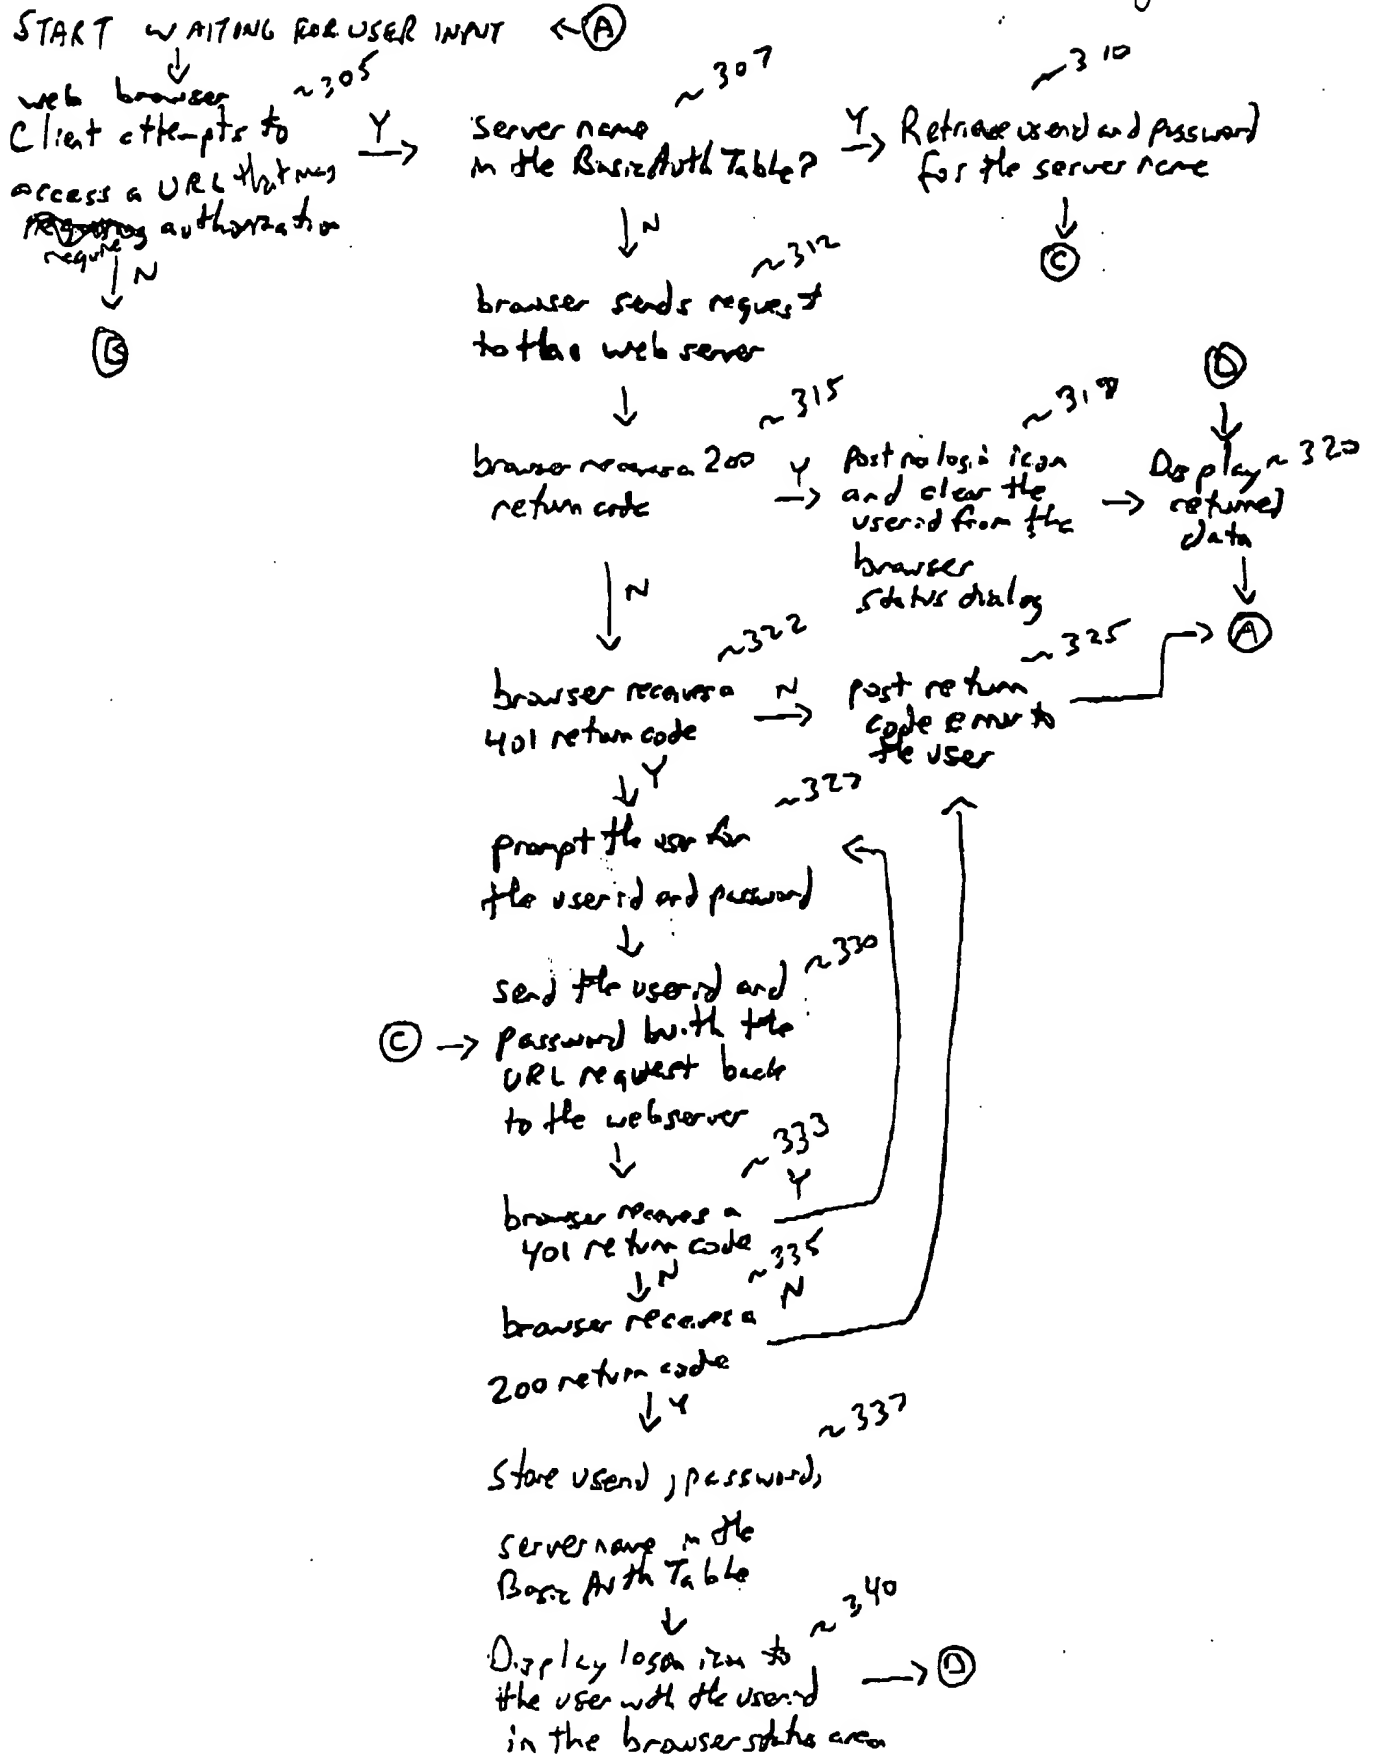 START WAITING FOR USER INPUT ← Ⓐ
web browser ~305
Client attempts to
access a URL that may
require authorization
Y
N
Ⓑ
~307
server name
in the Basic Auth Table?
Y
N
~310
Retrieve userid and password
for the server name
Ⓒ
~312
browser sends request
to the web server
~315
browser receives a 200
return code
Y
N
~318
Post no login icon
and clear the
userid from the
browser
status dialog
Ⓓ
Display ~320
returned
data
Ⓐ
~322
browser receives a
401 return code
N
Y
~325
post return
code error to
the user
~327
prompt the user for
the userid and password
~330
send the userid and
Ⓒ → password with the
URL request back
to the webserver
~333
browser receives a
401 return code
Y
N
~335
browser receives a
200 return code
N
Y
~337
Store userid, password,
servername in the
Basic Auth Table
~340
Display logon icon to
the user with the userid
in the browser status area
Ⓓ